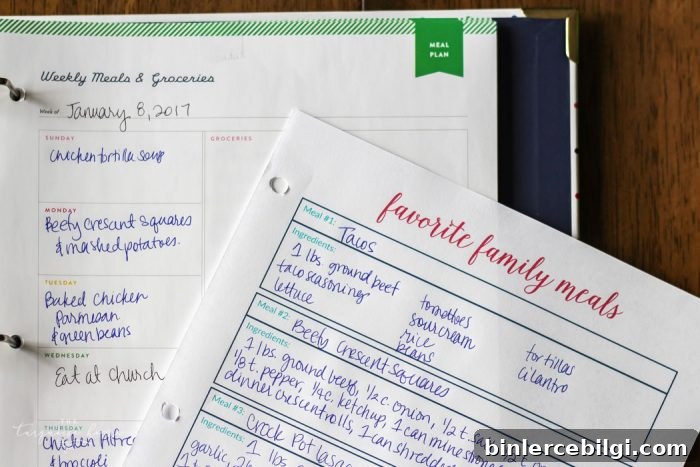 MEAL
PLAN
Weekly Meals & Groceries
Week of January 8, 2017
SUNDAY
chicken tortilla soup
GROCERIES
MONDAY
Beefy Crescent Squares
& mashed potatoes.
TUESDAY
Baked Chicken
Parmesan
& green beans
WEDNESDAY
Eat at Church
THURSDAY
Chicken Alfre
& broccoli
favorite family meals
Meal #1: Tacos
Ingredients:
1 lbs. ground beef
taco seasoning
lettuce
tomatoes
sour cream
rice
beans
tortillas
cilantro
Meal #2: Beefy Crescent Squares
Ingredients:
1 lbs. ground beef, 1/2 c. onion, 1/2 t.
1/8 t. pepper, 1/4 c. ketchup, 1 can
dinner crescent rolls, 1 can
Meal #3: Crock Pot
Ingredients:
garlic,
binlercebilgi.com